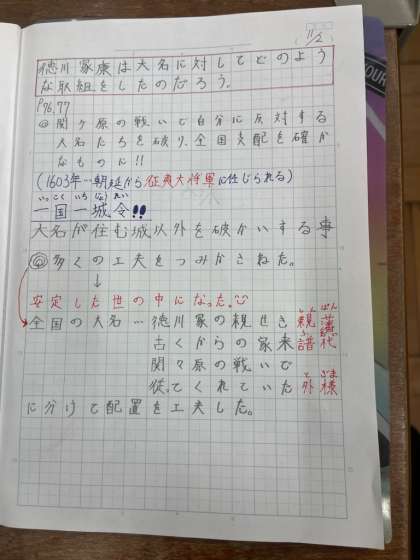 11/2
徳川家康は大名に対してどのよう
な取組をしたのだろう。
P76.77
◎関ヶ原の戦いで自分に反対する
大名たちを破り、全国支配を確か
なものに!!
(1603年…朝廷から征夷大将軍に任じられる)
いっこく いちじょうれい
一国一城令!!
大名が住む城以外を破かいする事
◎多くの工夫をつみかさねた。
↓
安定した世の中になった。
全国の大名…徳川家の親せき 親藩
古くからの家来 譜代
関ヶ原の戦いで
従ってくれていた 外様
に分けて配置を工夫した。